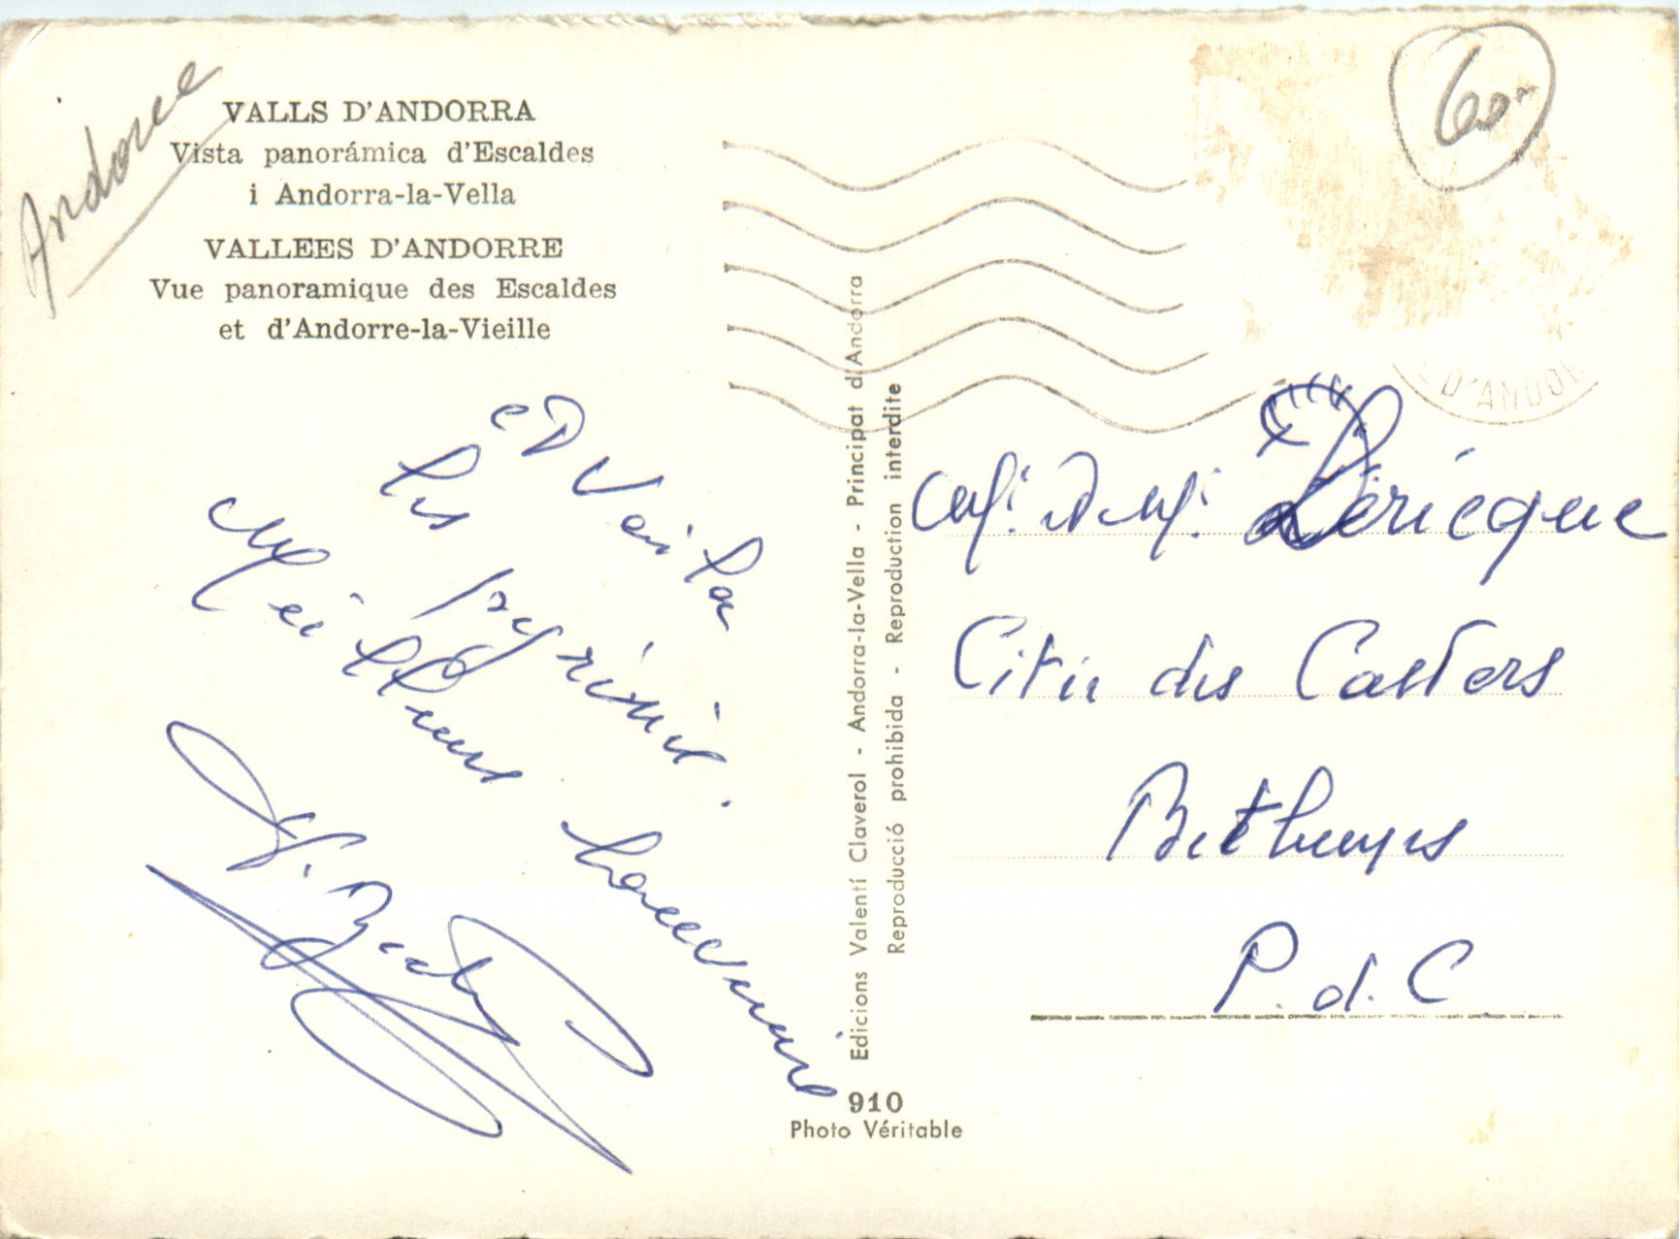 Andorre
VALLS D'ANDORRA
Vista panorámica d'Escaldes
i Andorra-la-Vella
VALLEES D'ANDORRE
Vue panoramique des Escaldes
et d'Andorre-la-Vieille
et Voila
les pyrénées.
Meilleurs Souvenirs
Edicions Valentí Claverol - Andorra-la-Vella - Principat d'Andorra
Reproducció prohibida - Reproduction interdite
910
Photo Véritable
60
D'ANDOR
Déricque
Citée des Castors
Bethunes
P.d.C